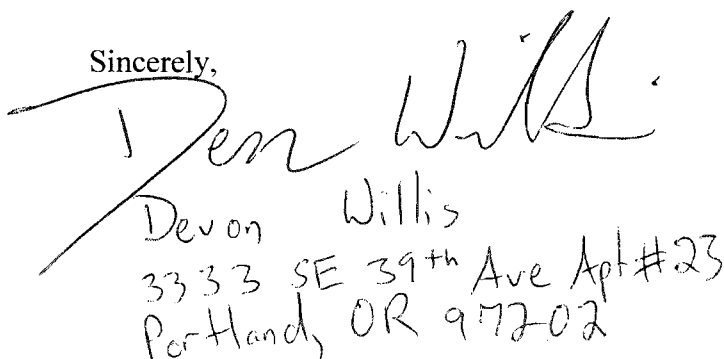 Sincerely,
Devon Willis
Devon Willis
3333 SE 39th Ave Apt #23
Portland, OR 97202